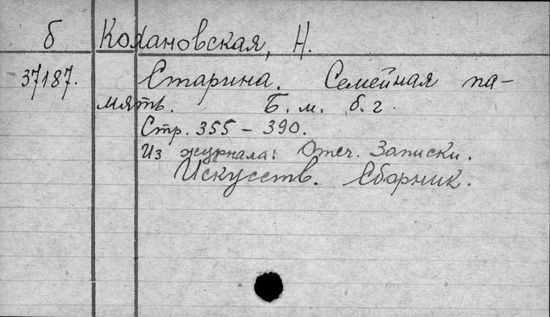 б Кохановская, Н.
37187. Старина. Семейная па-
мять. Б. м. б. г.
Стр. 355 – 390.
Из журнала: Отеч. Записки.
Искусств. Сборник.